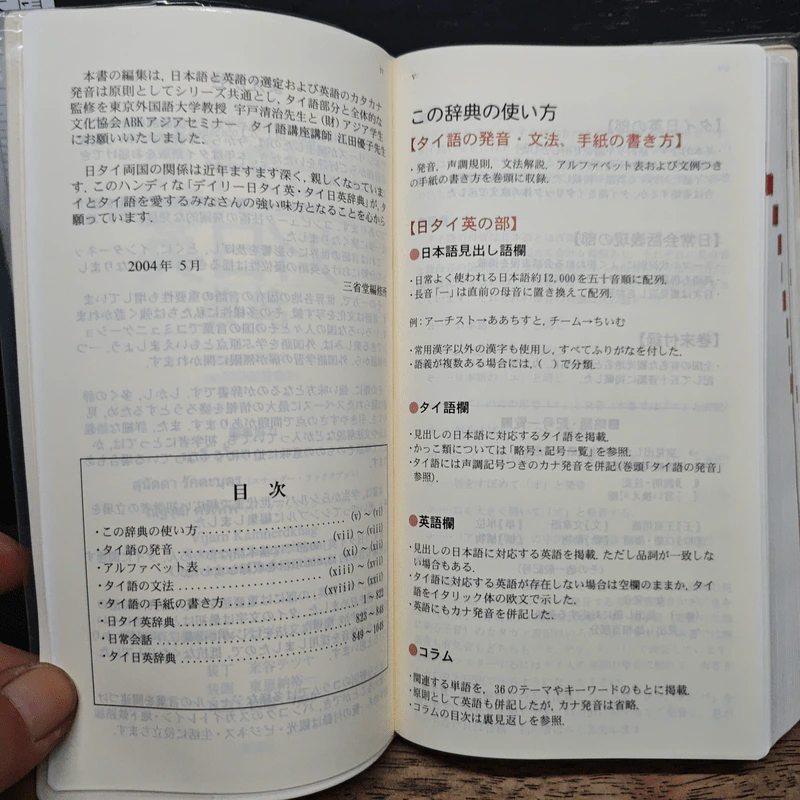 本書の編集は、日本語と英語の選定および英語のカタカナ
発音は原則としてシリーズ共通とし、タイ語部分と全体的な
監修を東京外国語大学教授 宇戸清治先生と(財)アジア学生
文化協会ABKアジアセミナー、タイ語講座講師 江田優子先生
にお願いいたしました.
日タイ両国の関係は近年ますます深く、親しくなっていま
す. このハンディな「デイリー日タイ英・タイ日英辞典」が、タ
イとタイ語を愛するみなさんの強い味方となることを心から
願っています.
2004年 5月
三省堂編修所
目 次
・この辞典の使い方 (v)~(vi)
・タイ語の発音 (vii)~(viii)
・アルファベット表 (xi)~(xii)
・タイ語の文法
・タイ語の手紙の書き方 (xviii)~(xxii)
・日タイ英辞典 1~822
・日常会話 823~848
・タイ日英辞典
v
この辞典の使い方
【タイ語の発音・文法、手紙の書き方】
・発音、声調規則、文法解説、アルファベット表および文例つき
の手紙の書き方を巻頭に収録.
【日タイ英の部】
●日本語見出し語欄
・日常よく使われる日本語約12,000を五十音順に配列.
・長音「ー」は直前の母音に置き換えて配列.
例:アーチスト→ああちすと, チーム→ちいむ
・常用漢字以外の漢字も使用し、すべてふりがなを付した.
・語義が複数ある場合には、( )で分類.
●タイ語欄
・見出しの日本語に対応するタイ語を掲載.
・かっこ類については「略号・記号一覧」を参照.
・タイ語には声調記号つきのカナ発音を併記(巻頭「タイ語の発音」
参照).
●英語欄
・見出しの日本語に対応する英語を掲載. ただし品詞が一致しな
い場合もある.
・タイ語に対応する英語が存在しない場合は空欄のままか、タイ
語をイタリック体の欧文で示した.
・英語にもカナ発音を併記した.
●コラム
・関連する単語を、36のテーマやキーワードのもとに掲載.
・原則として英語も併記したが、カナ発音は省略.
・コラムの目次は裏見返しを参照.